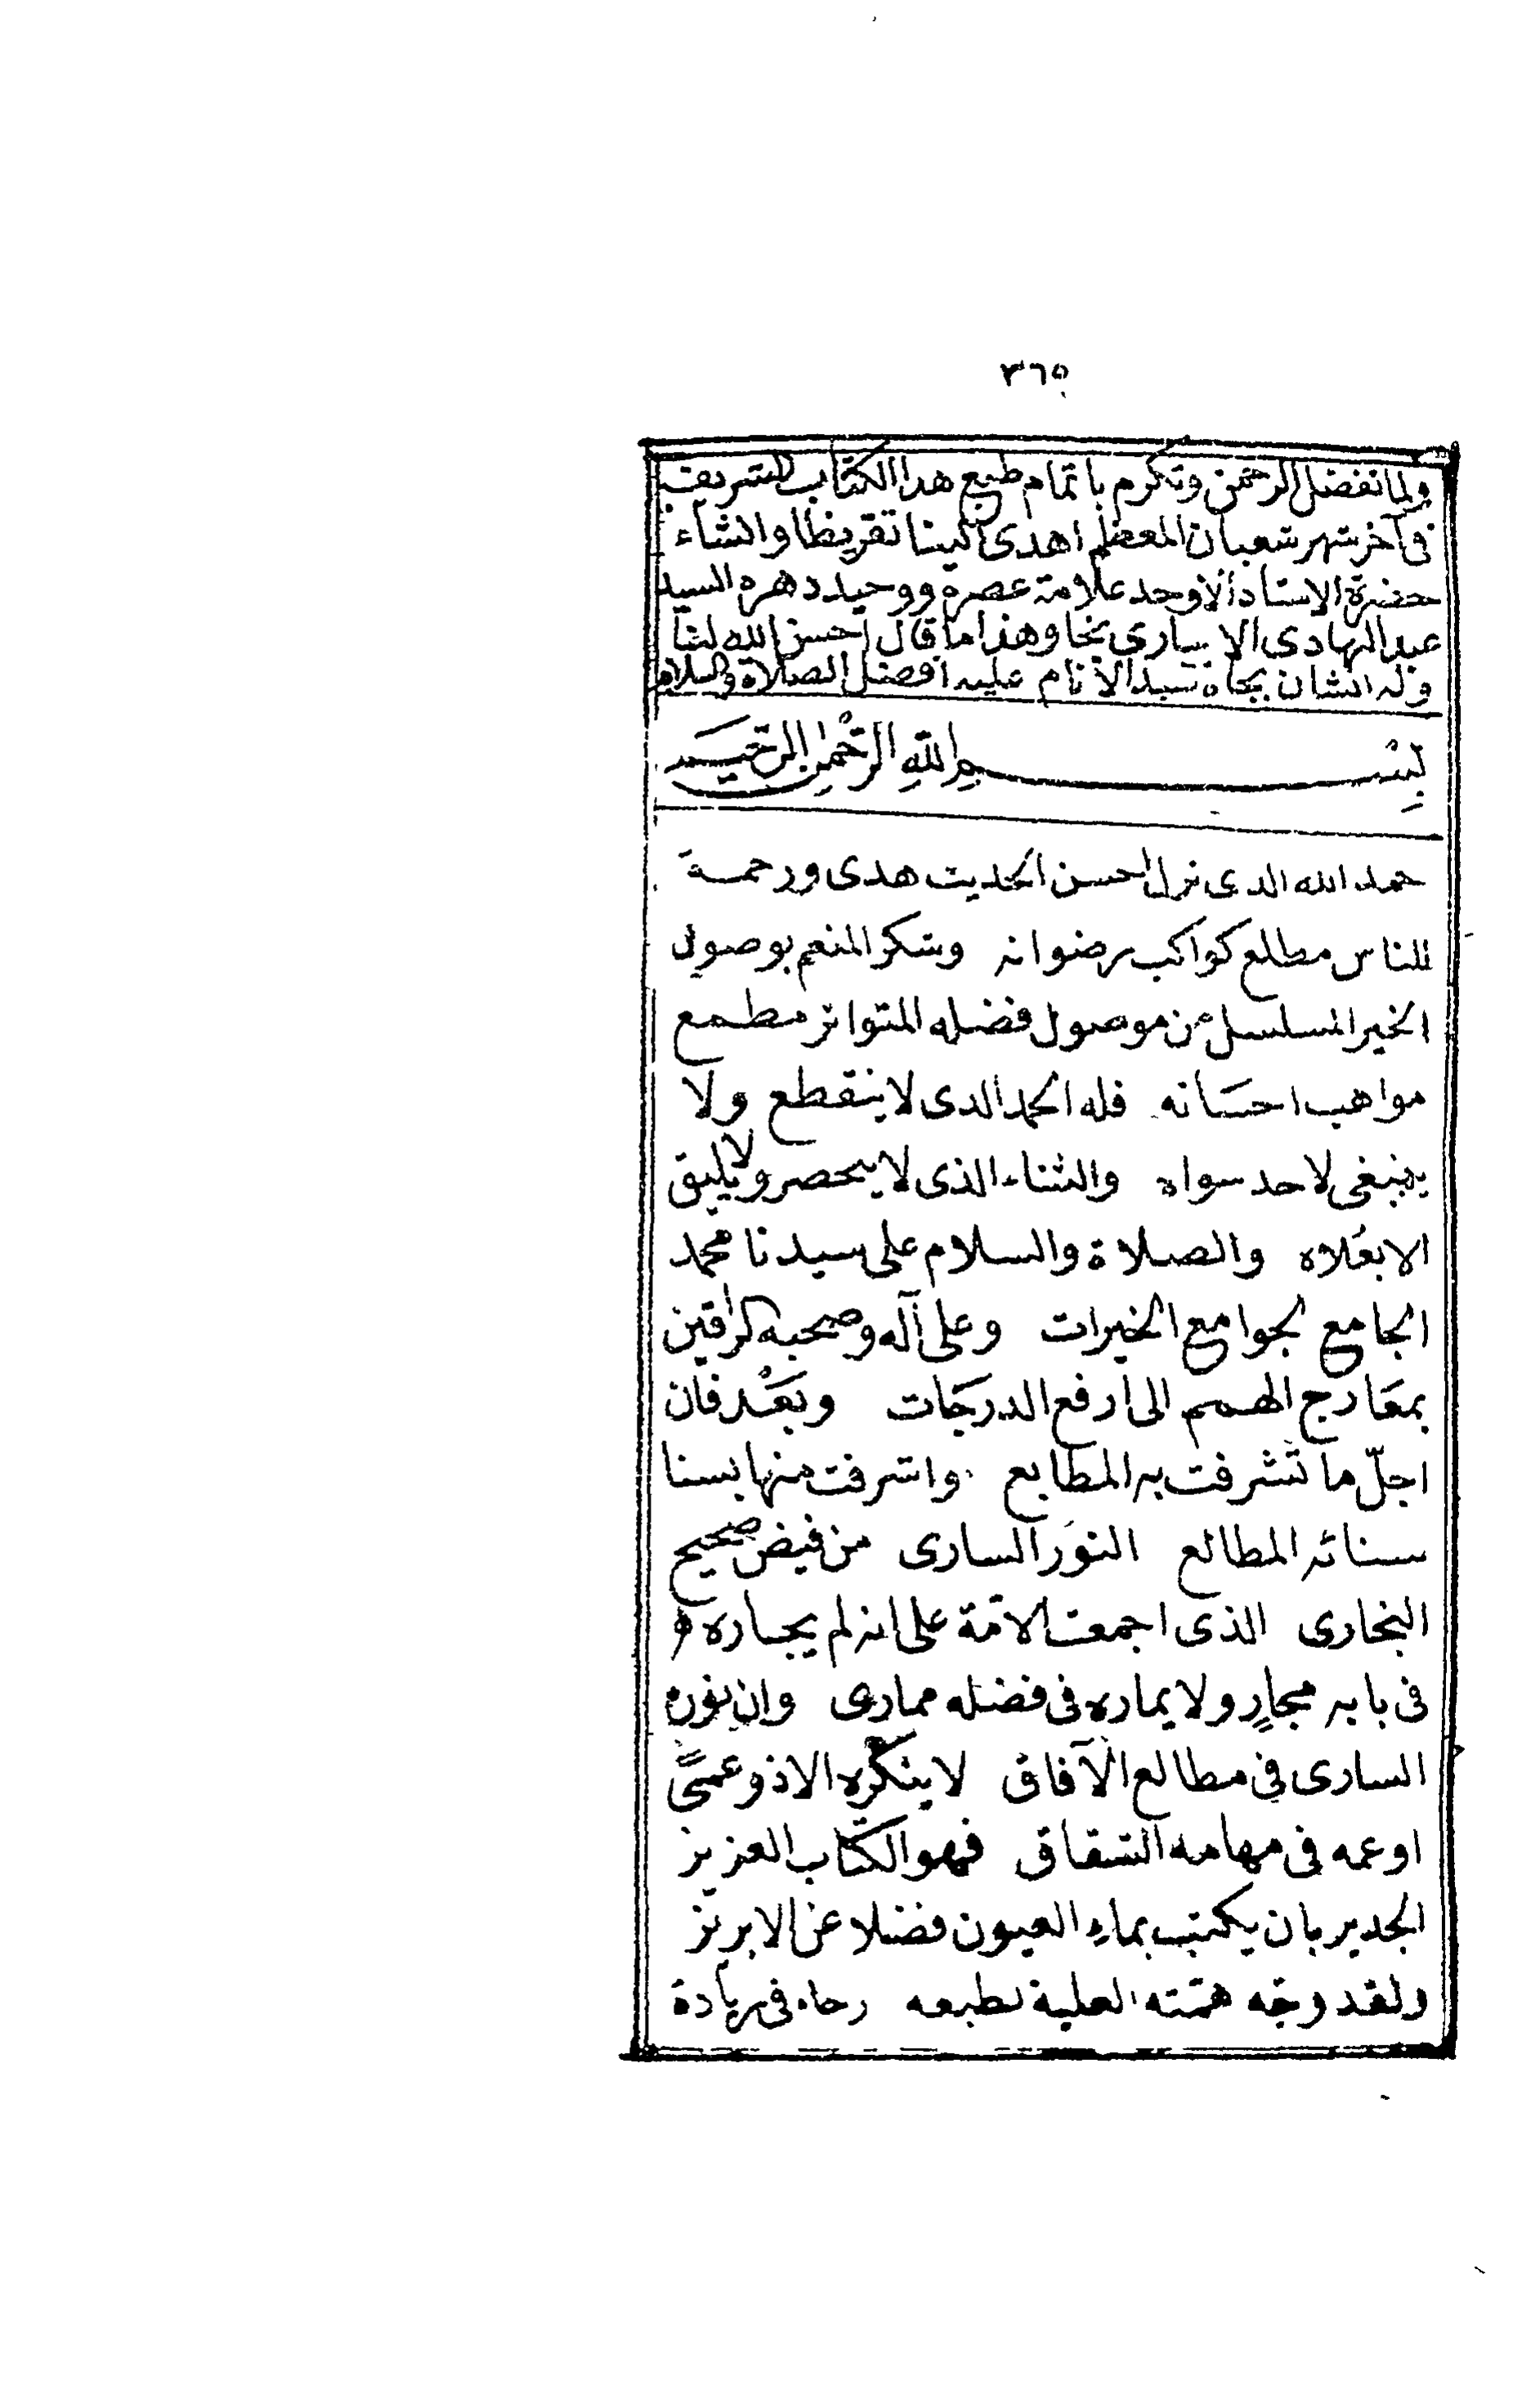 ٣٦٥
ولما تفضل الرحمن وتكرم باتمام طبع هذا الكتاب الشريف
فى آخر شهر شعبان المعظم اهدى الينا تقريظا وانشاء
حضرة الاستاذ الاوحد علامة عصره ووحيد دهره السيد
عبد الهادى الابيارى نجا وهذا ما قال احسن الله لنا
وله الشان بجاه سيد الانام عليه افضل الصلاة والسلام
بِسْمِ اللهِ الرَّحْمٰنِ الرَّحِيمِ
حمد الله الذى نزل احسن الحديث هدى ورحمة
للناس مطلع كواكب رضوانه وشكر المنعم بوصول
الخير المسلسل من موصول فضله المتواتر مطمع
مواهب احسَانه فله الحمد الذى لا ينقطع ولا
ينبغى لاحد سواه والثناء الذى لا يحصر ولا يليق
الا بعُلاه والصلاة والسلام على سيدنا محمد
الجامع لجوامع الخيرات وعلى آله وصحبه الراقين
بمعَارج الهمم الى ارفع الدرجَات وبَعْد فان
اجلّ ما تشرفت به المطابع واشرفت منها بسنا
سنائه المطالع النوَر السارى من فيض صحيح
البخارى الذى اجمعت الامّة على انه لم يجاره
فى بابه مجارٍ ولا يماره فى فضله ممارى وان نوره
السارى فى مطالع الآفاق لا ينكره الا ذو عمىً
او عمه فى مهامه الشقاق فهو الكتاب العزيز
الجدير بان يكتب بماء العيون فضلا عن الابريز
ولقد وجّه همّته العلية لطبعه رجاء فى زيادة